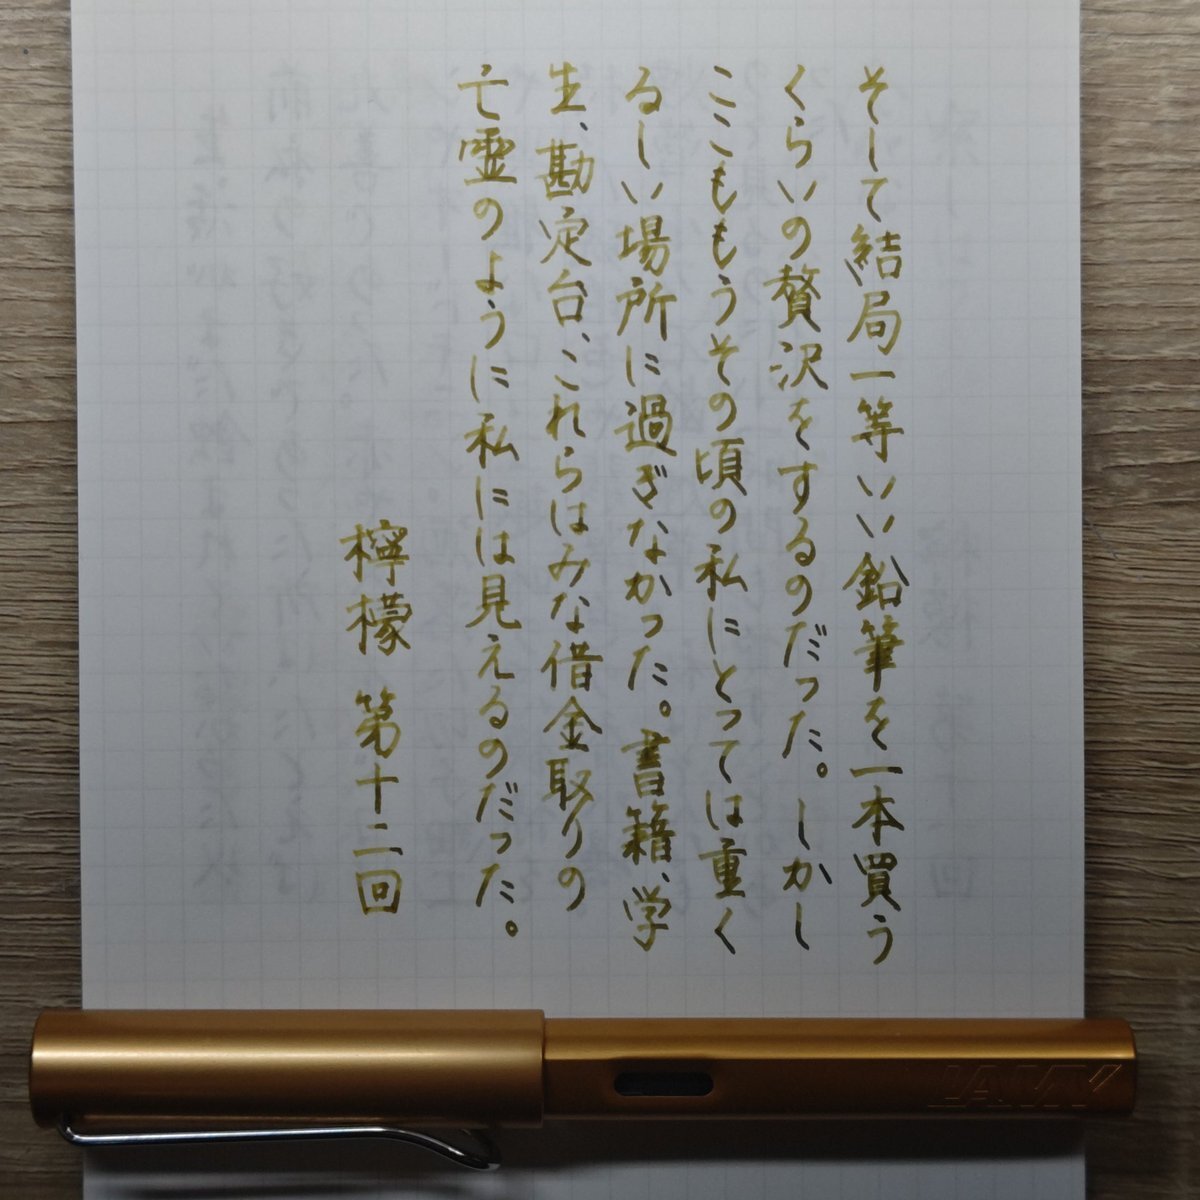 そして結局一等いい鉛筆を一本買う
くらいの贅沢をするのだった。しかし
ここももうその頃の私にとっては重く
るしい場所に過ぎなかった。書籍、学
生、勘定台、これらはみな借金取りの
亡霊のように私には見えるのだった。
檸檬 第十二回
LAMY